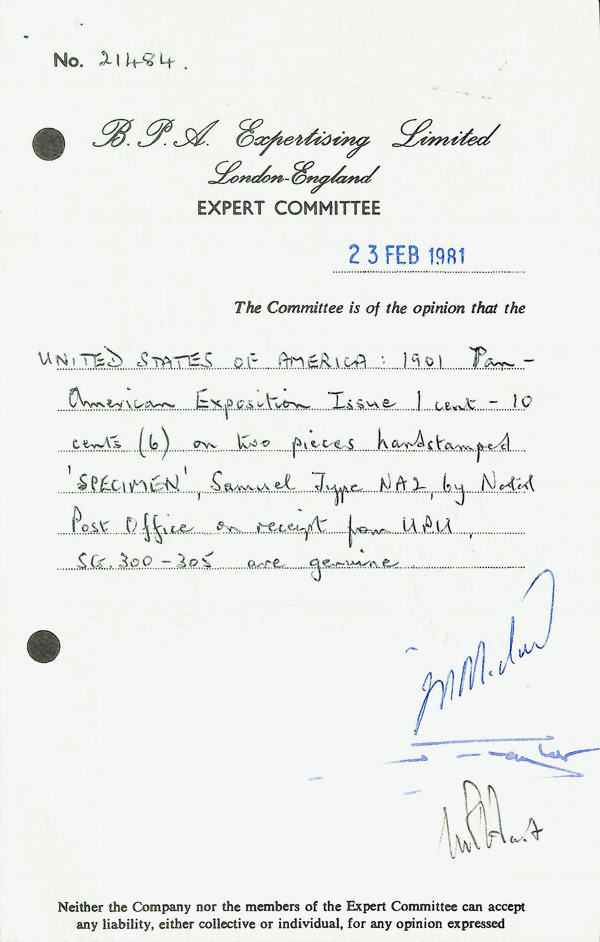 No. 21484.
B.P.A. Expertising Limited
London-England
EXPERT COMMITTEE
23 FEB 1981
The Committee is of the opinion that the
UNITED STATES OF AMERICA: 1901 Pan-
American Exposition Issue 1 cent - 10
cents (6) on two pieces handstamped
'SPECIMEN', Samuel Type NA2, by Natal
Post Office on receipt from UPU,
SG.300-305 are genuine.
Neither the Company nor the members of the Expert Committee can accept
any liability, either collective or individual, for any opinion expressed